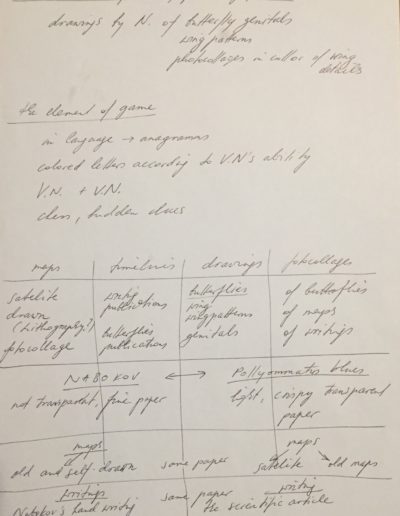 drawings by N. of butterfly genitals
wing patterns
photocollages in collor of wing
details
the element of game
in language → anagramms
colored letters according to V.N's ability
V.N. + V.N.
chess, hidden clues
maps timelines drawings fotocollages
satelite writing publications butterflies of butterflies
drawn wing of maps
(Lithography?) butterflies wingpatterns of writings
fotocollage publications genitals
NABOKOV ↔ Pollyommatus blues
not transparent, fine paper light, crispy transparent
paper
maps maps
old and self-drawn same paper satelite old maps
writings same paper writing
Nabokov's hand writing the scientific article